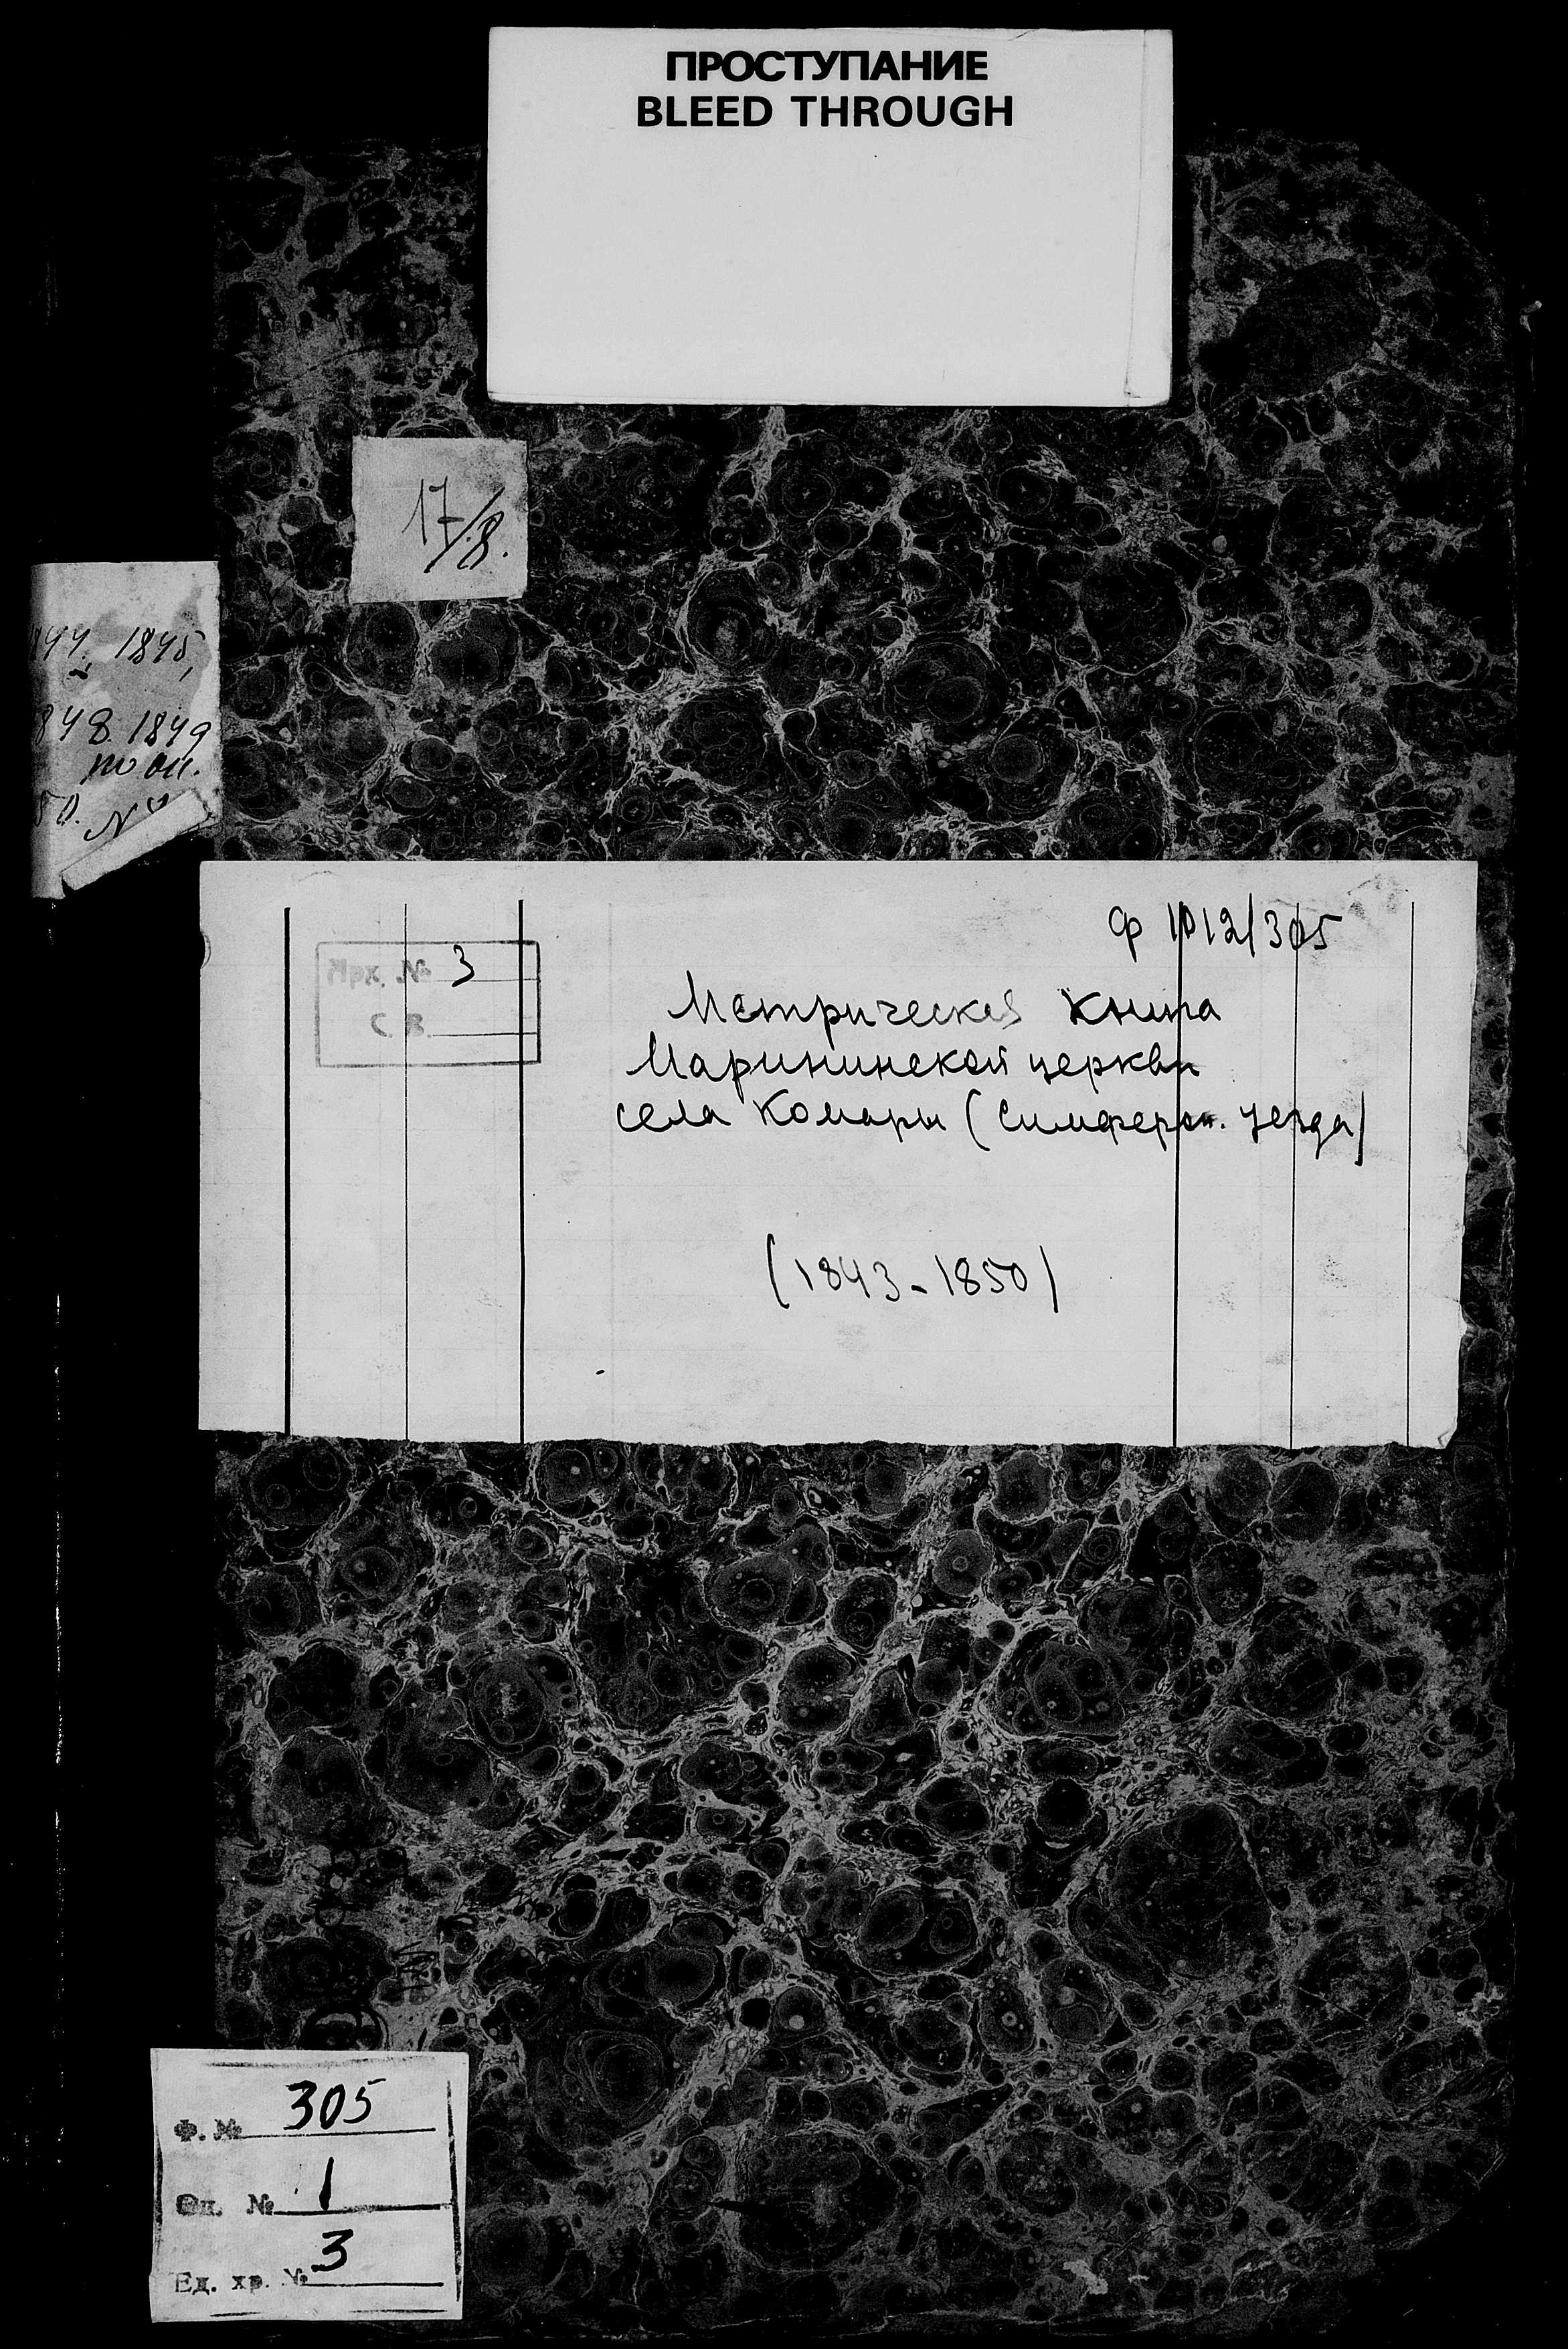 ПРОСТУПАНИЕ
BLEED THROUGH
17/8.
44. 1845,
848. 1849
по оп.
50. №
ф 1012/305
Арх. № 3
С В.
Метрическая книга
Марининской церкви
села Комары (Симфероп. уезда)
(1843-1850)
Ф. № 305
Оп. № 1
Ед. хр. № 3